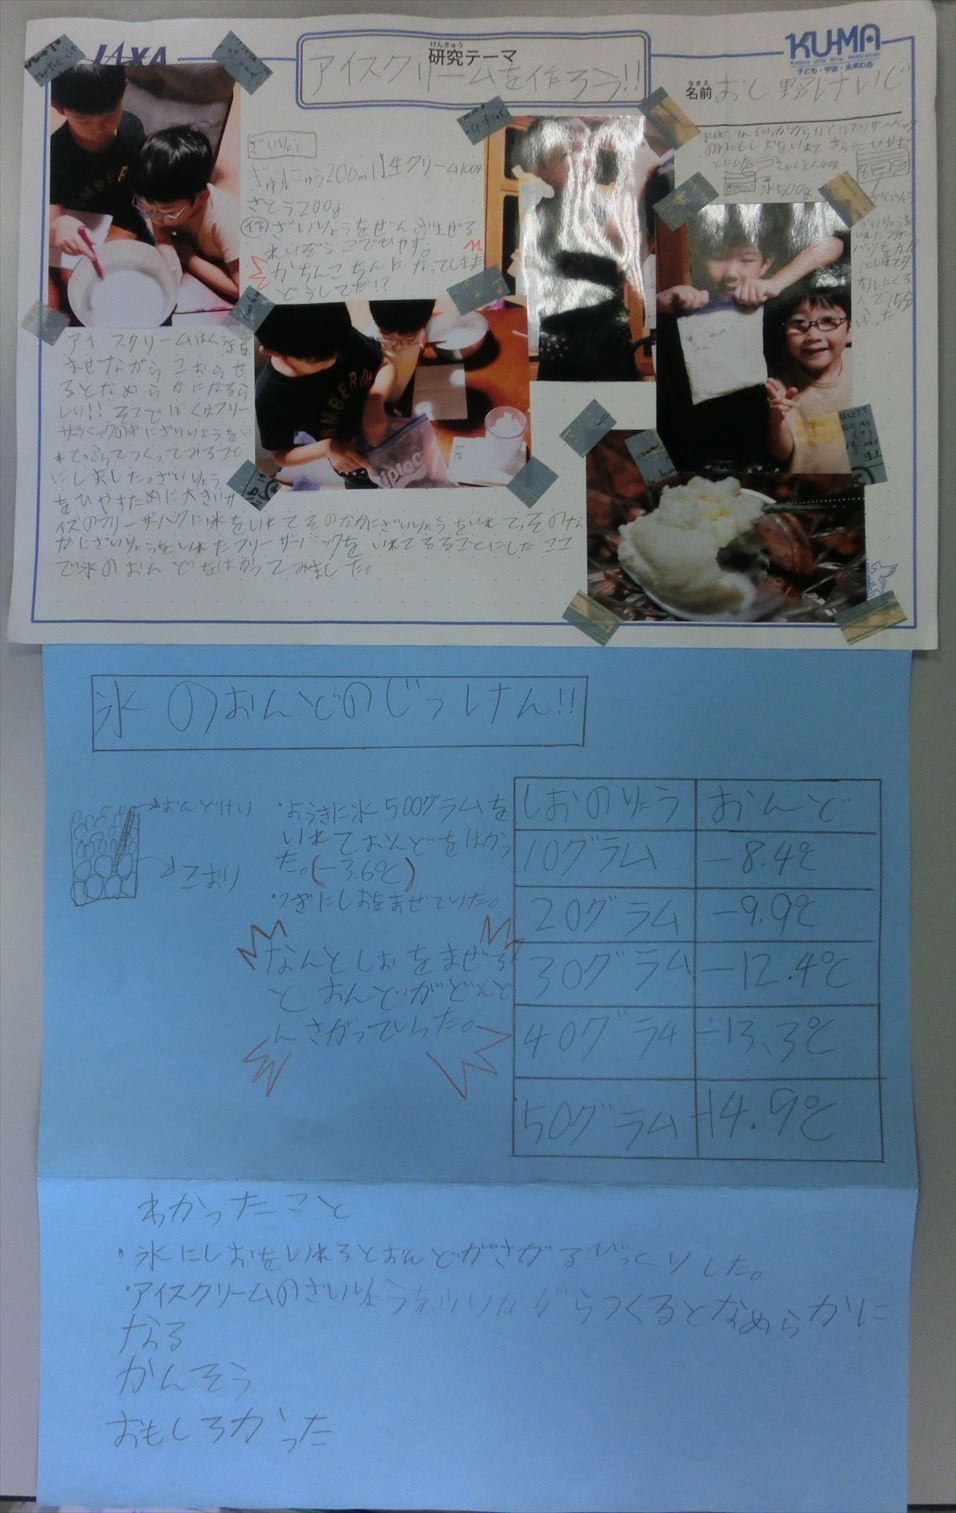 JAXA
研究テーマ
けんきゅう
アイスクリームを作ろう!!
KU-MA
子ども・宇宙・未来の会
名前
なまえ
おし野けいじ
ざいりょう
ぎゅうにゅう200ml 生クリーム100g
さとう200g
作 ざいりょうをぜんぶまぜる
れいぞうこでひやす。
かちんこちんになってしまった
どうしてだ!?
アイスクリームはくうきを
まぜながらこおらせ
るとなめらかになるら
しい!!そこでぼくはフリー
ザバックの中にざいりょうをい
れてふってつくってみること
にしました。ざいりょう
をひやすために大きいサ
イズのフリーザバグに氷をいれてそのなかにざいりょうをいれてっそのな
かにざいりょうをいれたフリーザーバックをいれてるることにしたここ
で氷のおんどをはかってみました。
氷500g
ziploc
氷のおんどのじっけん!!
おんどけい
こおり
・ようきに氷500グラムを
いれておんどをはかっ
た。(-3.6℃)
・つぎにしおをまぜていた。
なんとしおをまぜる
とおんどがどんど
んさがっていった。
しおのりょう おんど
10グラム -8.4℃
20グラム -9.9℃
30グラム -12.4℃
40グラム -13.3℃
50グラム -14.9℃
わかったこと
・氷にしおをいれるとおんどがさがるびっくりした。
・アイスクリームのざいりょうをふりながらつくるとなめらかに
なる
かんそう
おもしろかった